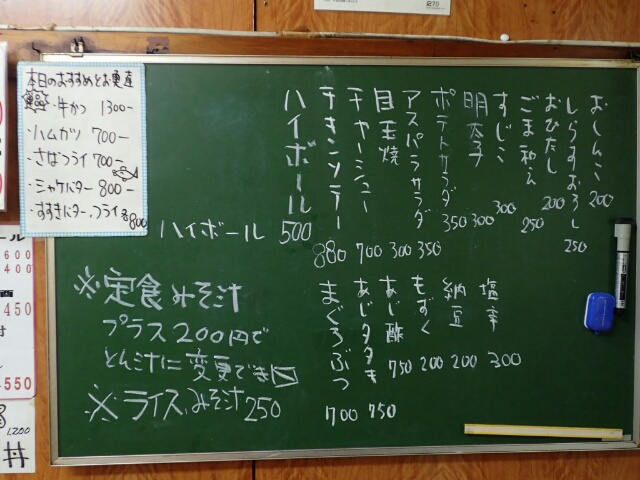 本日のおすすめとお惣菜
・牛かつ 1300-
・ハムカツ 700-
・さばフライ 700-
・シャケバター 800-
・すずきバター、フライ 各800
おしんこ 200
しらすおろし 250
おひたし 200
ごま和え 250
すじこ 300
明太子 300
ポテトサラダ 350
アスパラサラダ 350
目玉焼 300
チャーシュー 700
チキンソテー 880
ハイボール
ハイボール 500
塩辛 300
納豆 200
もずく 200
あじ酢 750
あじタタキ 750
まぐろぶつ 700
※定食みそ汁
プラス200円で
とん汁に変更でき〼
※ライス、みそ汁 250
ール
600
400
450
550
1,200
丼
270